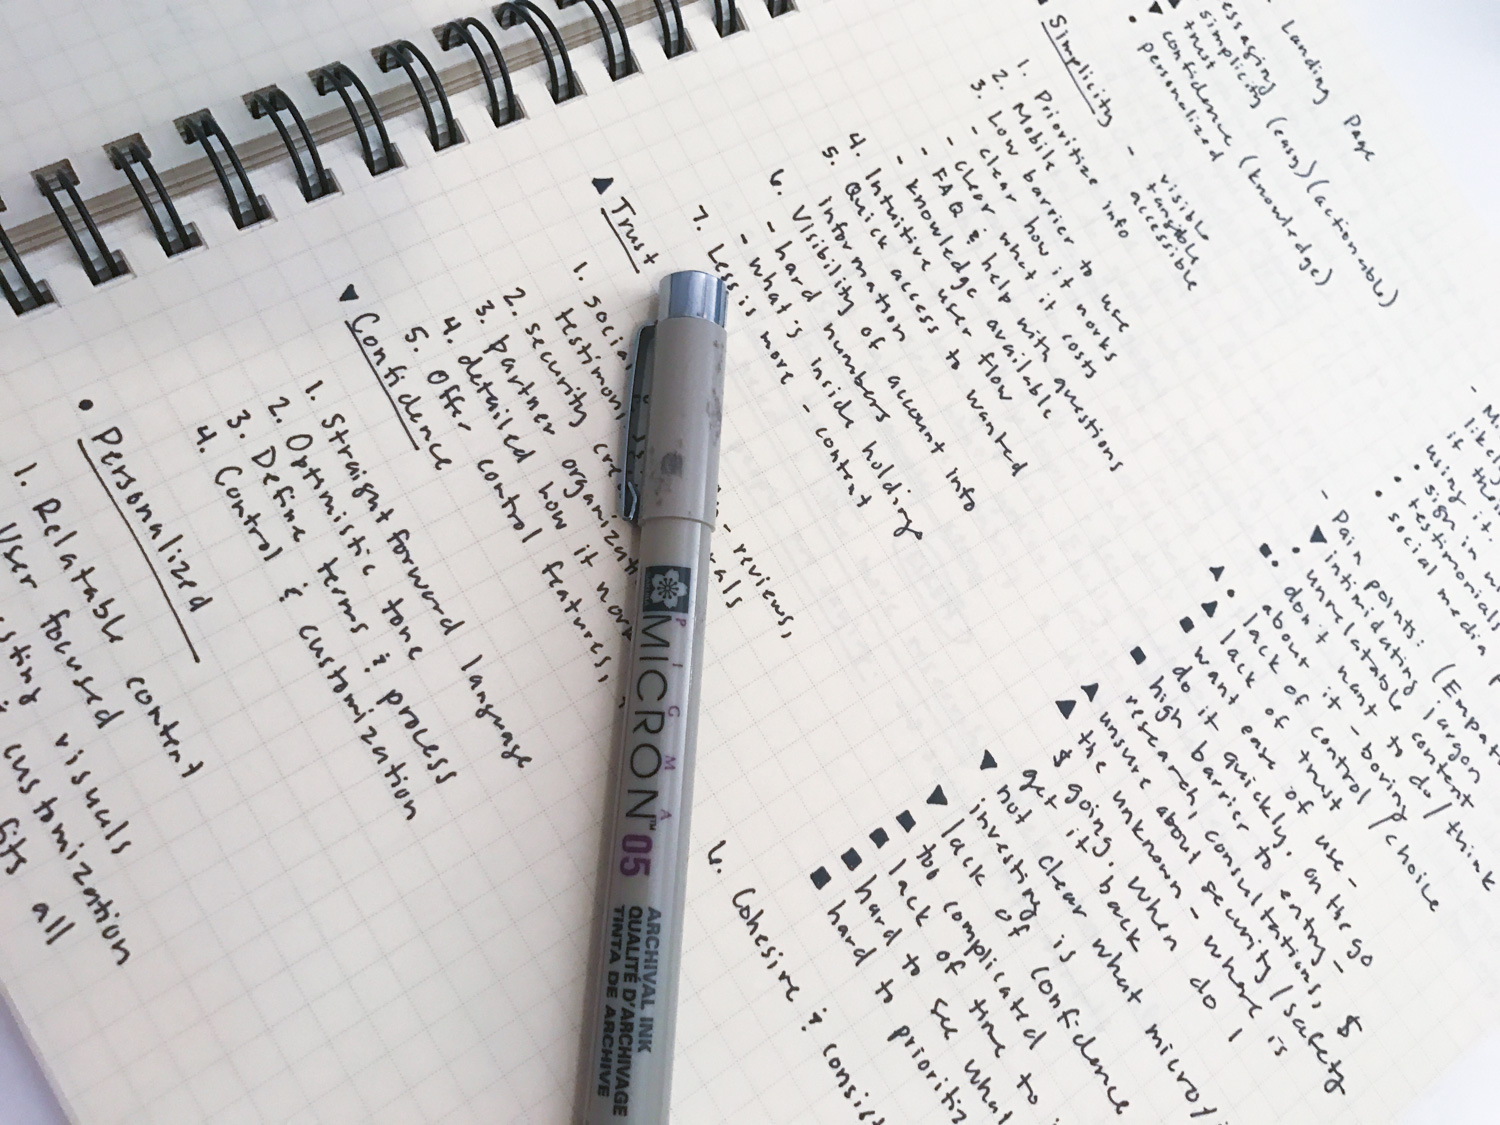 Landing Page
essaging
simplicity (easy) (actionable)
trust
confidence (knowledge)
personalized
Simplicity - visible
tangible
accessible
1. Prioritize info
2. Mobile
3. Low barrier to use
- clear how it works
- clear what it costs
- FAQ & help with questions
- knowledge available
4. Intuitive user flow
5. Quick access to wanted
information
6. Visibility of account info
- hard numbers
- what's inside holding
7. Less is more - content
Trust
1. social - reviews,
testimoni als
2. security cre
3. partner organizati
4. detailed how it work
5. Offer control features,
Confidence
1. Straight forward language
2. Optimistic tone
3. Define terms & process
4. Control & customization
Personalized
1. Relatable content
User focused
sting visuals
& customization
fits all
likely
if their
using it.
sign in w
testimonials
social media
- Pain points: (Empat
intimidating jargon
unrelatable content
don't want to do/think
about it - boring
lack of control/choice
lack of trust
want ease of use -
do it quickly. on the go
high barrier to entry -
research, consultations, $
unsure about security/safety
the unknown - where is
$ going. When do I
get it back
not clear what micro/
investing is
lack of confidence
too complicated
lack of time to
hard to see what
hard to prioritiz
6. Cohesive & consist
PIGMA
MICRON™ 05
ARCHIVAL INK
QUALITÉ D'ARCHIVAGE
TINTA DE ARCHIVE